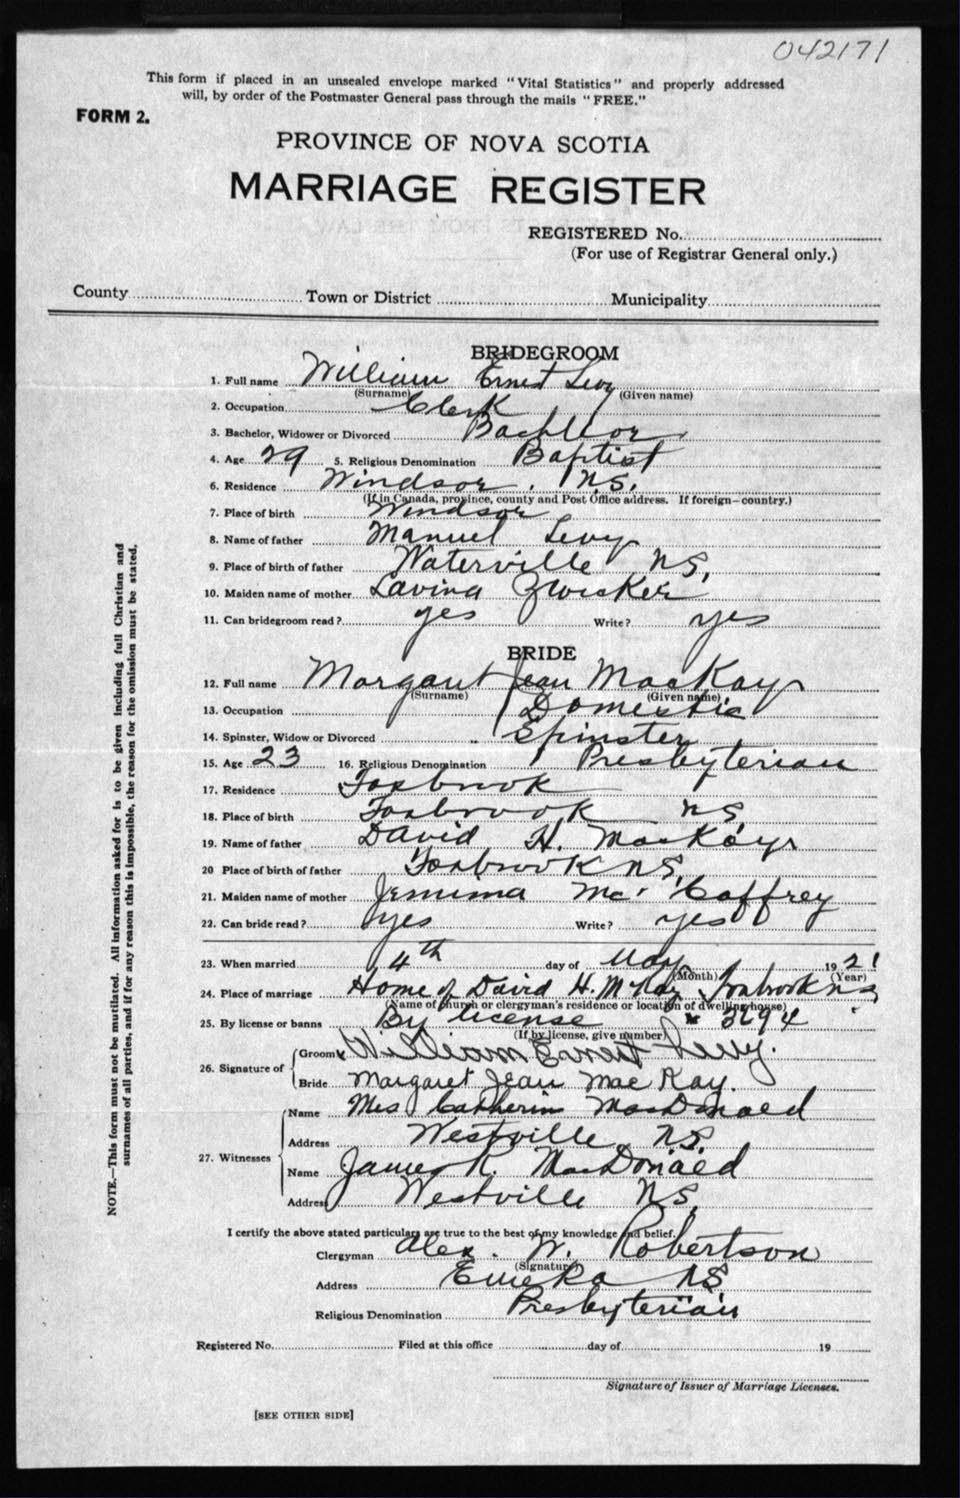 042171
This form if placed in an unsealed envelope marked "Vital Statistics" and properly addressed
will, by order of the Postmaster General pass through the mails "FREE."
FORM 2.
PROVINCE OF NOVA SCOTIA
MARRIAGE REGISTER
REGISTERED No.
(For use of Registrar General only.)
County Town or District Municipality
BRIDEGROOM
1. Full name William Ernest Levy
(Surname) (Given name)
2. Occupation Clerk
3. Bachelor, Widower or Divorced Bachleor
4. Age 29 5. Religious Denomination Baptist
6. Residence Windsor, N.S.
(If in Canada, province, county and Post Office address. If foreign—country.)
7. Place of birth Windsor
8. Name of father Manuel Levy
9. Place of birth of father Waterville NS.
10. Maiden name of mother Lavina Zwicker
11. Can bridegroom read? yes Write? yes
BRIDE
12. Full name Margaret Jean MacKay
(Surname) (Given name)
13. Occupation Domestic
14. Spinster, Widow or Divorced Spinster
15. Age 23 16. Religious Denomination Presbyterian
17. Residence Foxbrook
18. Place of birth Foxbrook NS
19. Name of father David H. MacKay
20 Place of birth of father Foxbrook NS.
21. Maiden name of mother Jemima McCaffrey
22. Can bride read? yes Write? yes
23. When married 4th day of May 1921
(Month) (Year)
24. Place of marriage Home of David H. McKay Foxbrook NS
(Name of church or clergyman's residence or location of dwelling house)
25. By license or banns By license 3694
(If by license, give number)
26. Signature of Groom William Ernest Levy.
Bride Margaret Jean MacKay.
27. Witnesses Name Mrs Catherin MacDonald
Address Westville NS.
Name James R. MacDonald
Address Westville NS.
I certify the above stated particulars are true to the best of my knowledge and belief.
Clergyman Alex. W. Robertson
(Signature)
Address Eureka NS
Religious Denomination Presbyterian
Registered No. Filed at this office day of 19
Signature of Issuer of Marriage Licenses.
[SEE OTHER SIDE]
NOTE.—This form must not be mutilated. All information asked for is to be given including full Christian and
surnames of all parties, and if for any reason this is impossible, the reason for the omission must be stated.